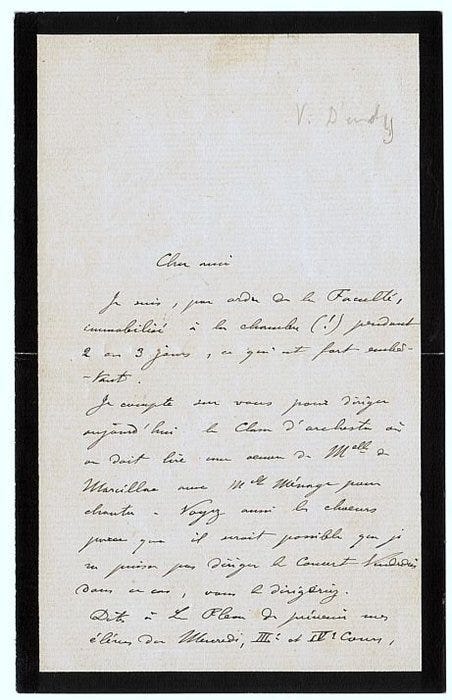 V. D'Indy
Cher ami
Je suis, par ordre de la Faculté,
immobilisé à la chambre (!) pendant
2 ou 3 jours, ce qui est fort embê-
-tant.
Je compte sur vous pour diriger
aujourd'hui la Classe d'orchestre où
on doit lire une oeuvre de Melle de
Marcillac avec Melle Ménage pour
chanter - Voyez aussi les choeurs
parce que il serait possible que je
ne puisse pas diriger le Concert Vendredi
dans ce cas, vous le dirigeriez.
Dites à Le Plem de prévenir mes
élèves du Mercredi, IIIe et IVe Cours,